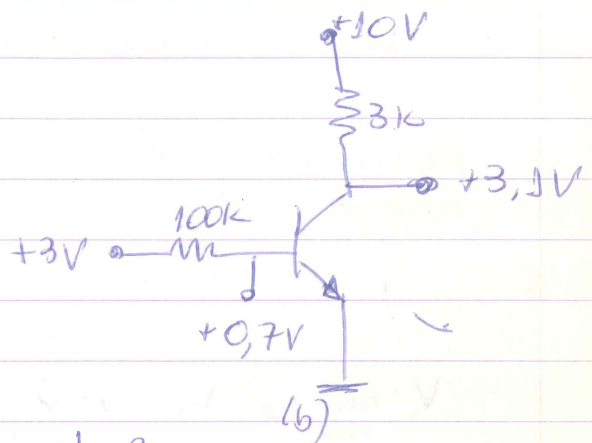 +10V
3k
+3,1V
100k
+3V
+0,7V
(b)